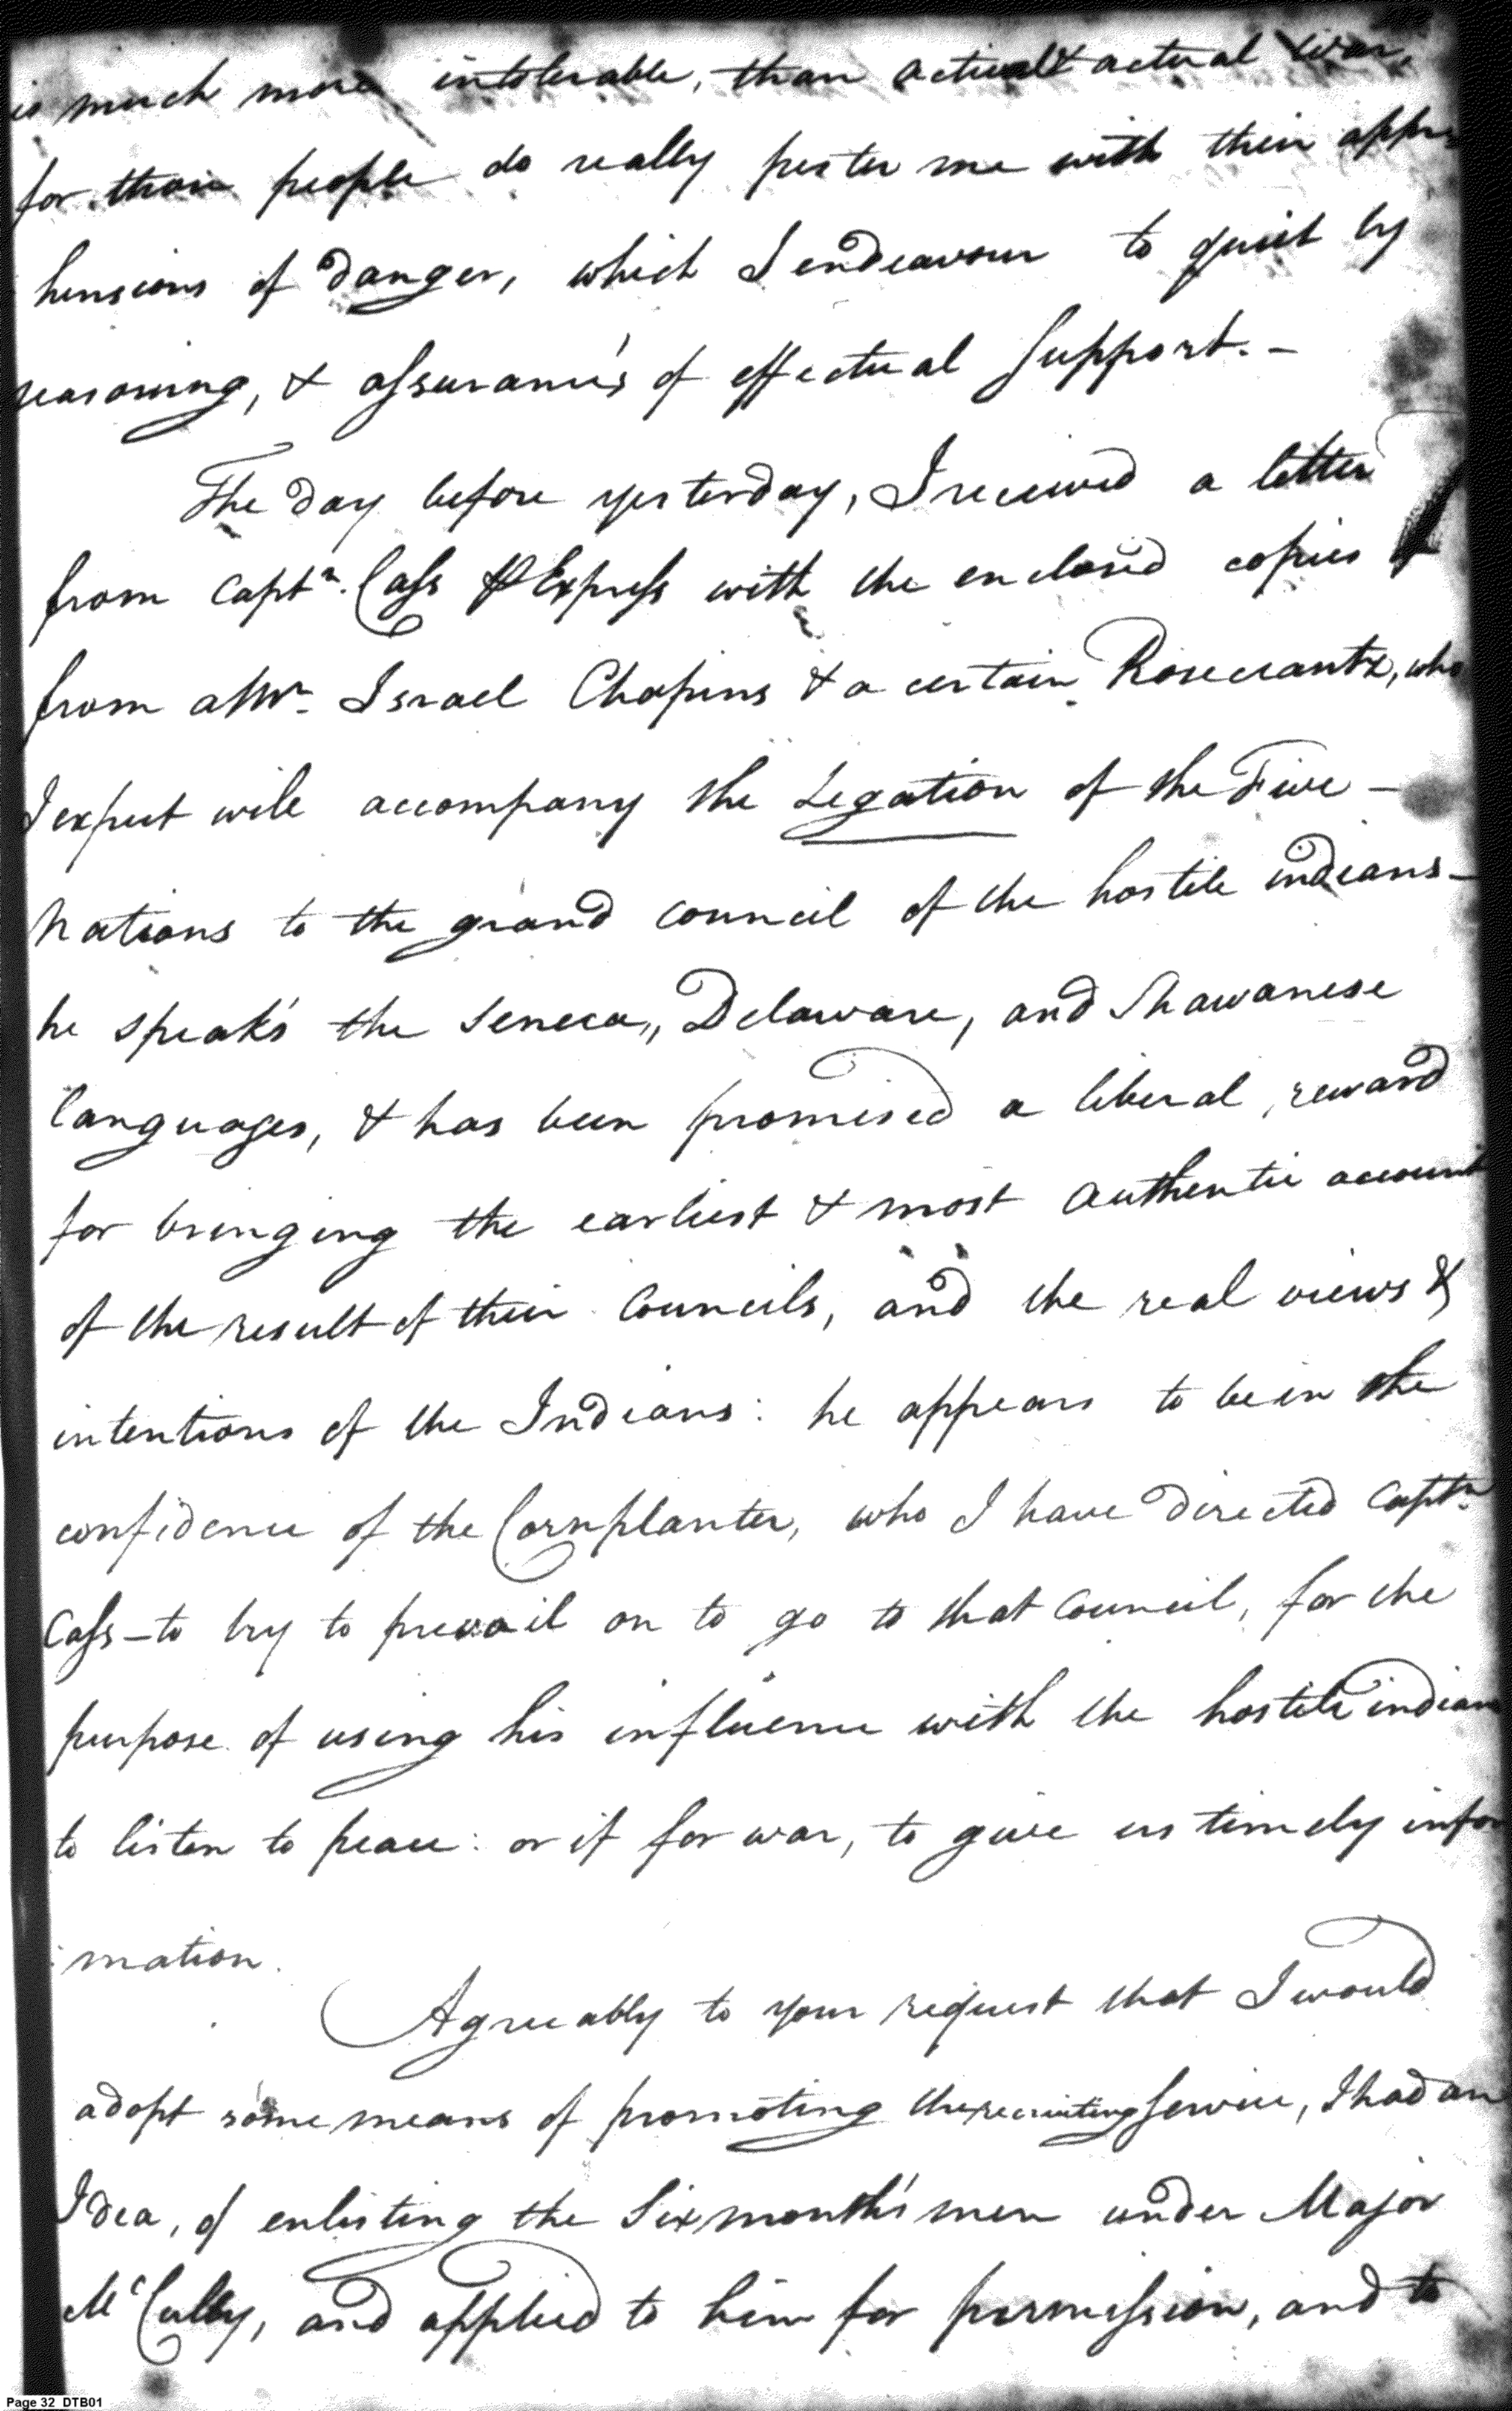 is much more intolerable, than actual & actual War,
for those people do really pester me with their appre
hensions of danger, which I endeavour to quiet by
reasoning, & assurance's of effectual support. -
The day before yesterday, I received a letter
from Captn. Cass ⅌ Express with the enclosed copies of
from a Mr. Israel Chapins & a certain Rosecrantz, who
I expect will accompany the Legation of the Five -
Nations to the grand council of the hostile indians -
he speak's the Seneca,, Delaware, and Shawanese
languages, & has been promised a liberal reward
for bringing the earliest & most authentic account
of the result of their Councils, and the real views &
intentions of the Indians: he appears to be in the
confidence of the Cornplanter, who I have directed Captn.
Cass - to try to prevail on to go to that Council, for the
purpose of using his influence with the hostile indians
to listen to peace: or if for war, to give us timely infor
:mation.
Agreeably to your request that I would
adopt some means of promoting the recruiting service, I had an
Idea, of enlisting the Six month's men under Major
McCully, and applied to him for permission, and to
Page 32 DTB01